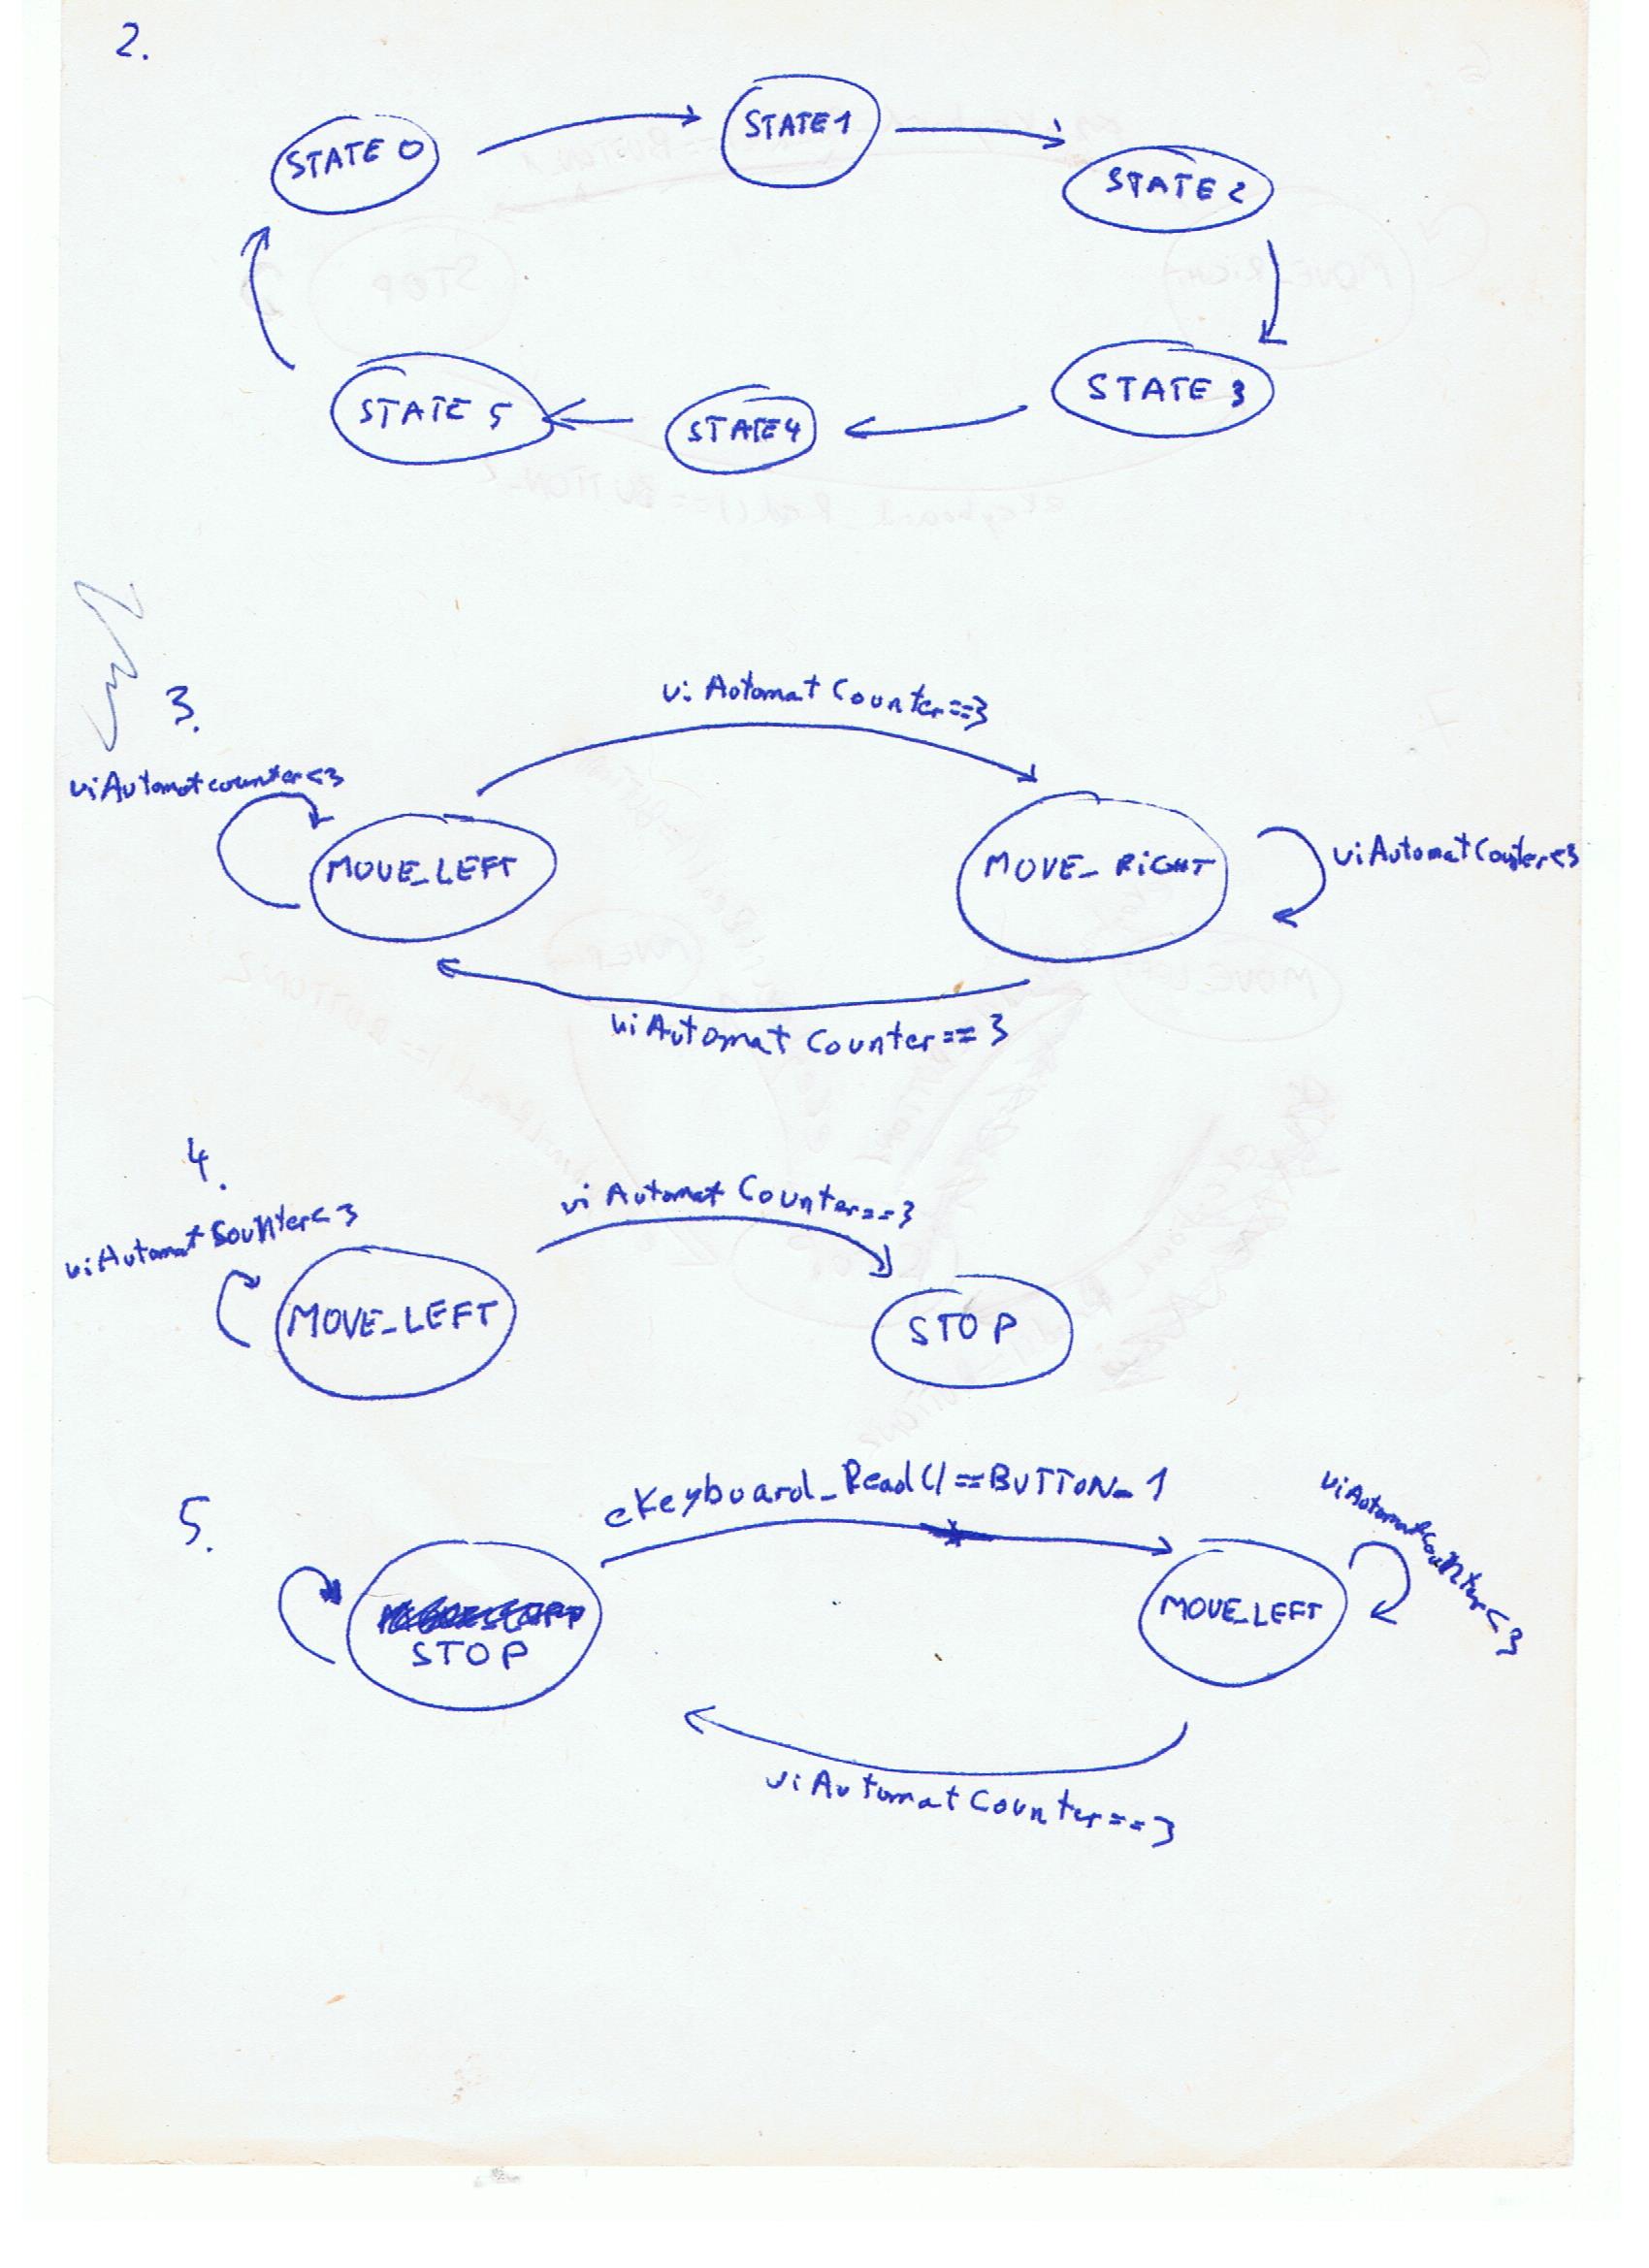 2.
STATE 0
STATE 1
STATE 2
STATE 5
STATE 4
STATE 3
3.
uiAutomatCounter==3
uiAutomatcounter<3
MOVE_LEFT
MOVE_RIGHT
uiAutomatCouter<3
uiAutomatCounter==3
4.
uiAutomatCounter<3
uiAutomatCounter==3
MOVE_LEFT
STOP
5.
eKeyboard_Read()==BUTTON_1
uiAutomatCounter<3
STOP
MOVE_LEFT
uiAutomatCounter==3